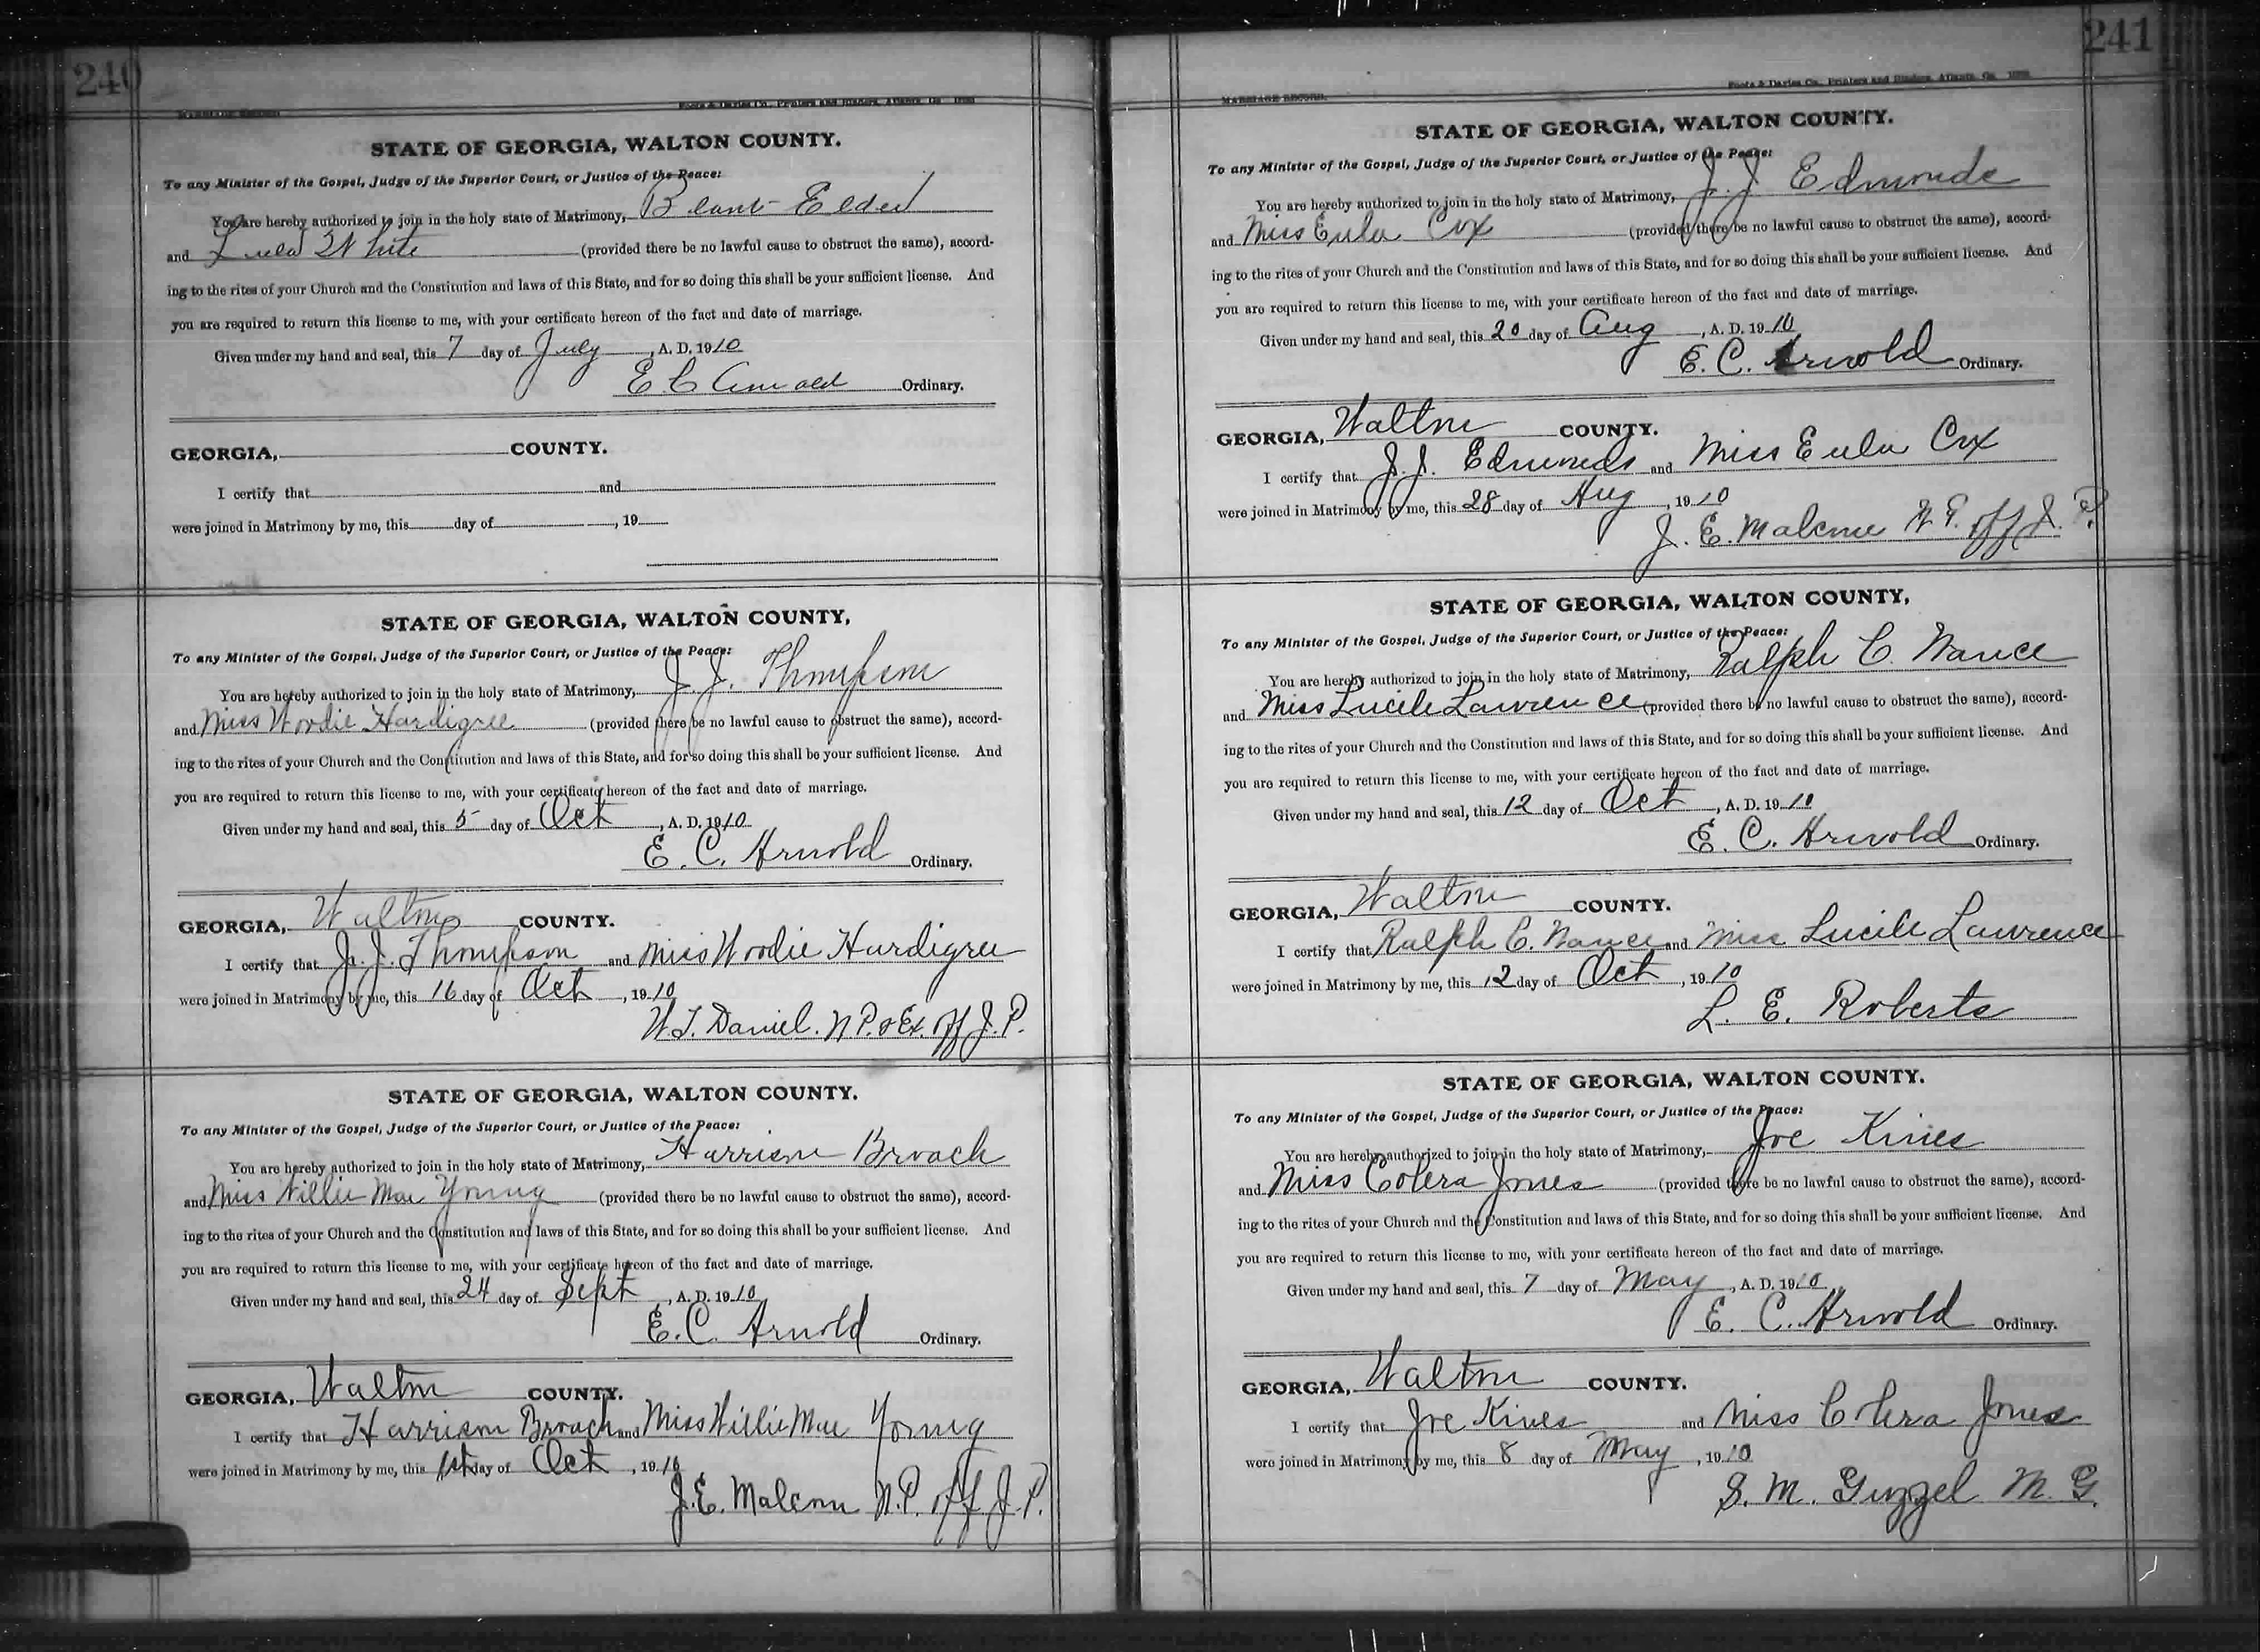 240
MARRIAGE RECORD. Foote & Davies Co., Printers and Binders, Atlanta, Ga.
STATE OF GEORGIA, WALTON COUNTY.
To any Minister of the Gospel, Judge of the Superior Court, or Justice of the Peace:
You are hereby authorized to join in the holy state of Matrimony, Elder
and Lula White (provided there be no lawful cause to obstruct the same), accord-
ing to the rites of your Church and the Constitution and laws of this State, and for so doing this shall be your sufficient license. And
you are required to return this license to me, with your certificate hereon of the fact and date of marriage.
Given under my hand and seal, this 7 day of July, A. D. 1910
E C Arnold Ordinary.
GEORGIA, COUNTY.
I certify that and
were joined in Matrimony by me, this day of , 19
STATE OF GEORGIA, WALTON COUNTY,
To any Minister of the Gospel, Judge of the Superior Court, or Justice of the Peace:
You are hereby authorized to join in the holy state of Matrimony, J. J. Thompson
and Miss Woodie Hardigree (provided there be no lawful cause to obstruct the same), accord-
ing to the rites of your Church and the Constitution and laws of this State, and for so doing this shall be your sufficient license. And
you are required to return this license to me, with your certificate hereon of the fact and date of marriage.
Given under my hand and seal, this 5 day of Oct, A. D. 1910
E. C. Arnold Ordinary.
GEORGIA, Walton COUNTY.
I certify that J. J. Thompson and Miss Woodie Hardigree
were joined in Matrimony by me, this 16 day of Oct, 1910
W. T. Daniel. N.P. & Ex. off J. P.
STATE OF GEORGIA, WALTON COUNTY.
To any Minister of the Gospel, Judge of the Superior Court, or Justice of the Peace:
You are hereby authorized to join in the holy state of Matrimony, Harrison Broach
and Miss Willie Mae Young (provided there be no lawful cause to obstruct the same), accord-
ing to the rites of your Church and the Constitution and laws of this State, and for so doing this shall be your sufficient license. And
you are required to return this license to me, with your certificate hereon of the fact and date of marriage.
Given under my hand and seal, this 24 day of Sept, A. D. 1910
E. C. Arnold Ordinary.
GEORGIA, Walton COUNTY.
I certify that Harrison Broach and Miss Willie Mae Young
were joined in Matrimony by me, this 1st day of Oct, 1910
J. E. Malcom N. P. off J. P.
241
MARRIAGE RECORD. Foote & Davies Co., Printers and Binders, Atlanta, Ga.
STATE OF GEORGIA, WALTON COUNTY.
To any Minister of the Gospel, Judge of the Superior Court, or Justice of the Peace:
You are hereby authorized to join in the holy state of Matrimony, J. J Edmonds
and Miss Eula Cox (provided there be no lawful cause to obstruct the same), accord-
ing to the rites of your Church and the Constitution and laws of this State, and for so doing this shall be your sufficient license. And
you are required to return this license to me, with your certificate hereon of the fact and date of marriage.
Given under my hand and seal, this 20 day of Aug, A. D. 1910
E. C. Arnold Ordinary.
GEORGIA, Walton COUNTY.
I certify that J. J. Edmonds and Miss Eula Cox
were joined in Matrimony by me, this 28 day of Aug, 1910
J. E. Malcom N. P. off J. P.
STATE OF GEORGIA, WALTON COUNTY,
To any Minister of the Gospel, Judge of the Superior Court, or Justice of the Peace:
You are hereby authorized to join in the holy state of Matrimony, Ralph C. Nance
and Miss Lucile Lawrence (provided there be no lawful cause to obstruct the same), accord-
ing to the rites of your Church and the Constitution and laws of this State, and for so doing this shall be your sufficient license. And
you are required to return this license to me, with your certificate hereon of the fact and date of marriage.
Given under my hand and seal, this 12 day of Oct, A. D. 1910
E. C. Arnold Ordinary.
GEORGIA, Walton COUNTY.
I certify that Ralph C. Nance and Miss Lucile Lawrence
were joined in Matrimony by me, this 12 day of Oct, 1910
L. E. Roberts
STATE OF GEORGIA, WALTON COUNTY.
To any Minister of the Gospel, Judge of the Superior Court, or Justice of the Peace:
You are hereby authorized to join in the holy state of Matrimony, Joe Kines
and Miss Colera Jones (provided there be no lawful cause to obstruct the same), accord-
ing to the rites of your Church and the Constitution and laws of this State, and for so doing this shall be your sufficient license. And
you are required to return this license to me, with your certificate hereon of the fact and date of marriage.
Given under my hand and seal, this 7 day of May, A. D. 1910
E. C. Arnold Ordinary.
GEORGIA, Walton COUNTY.
I certify that Joe Kines and Miss Colera Jones
were joined in Matrimony by me, this 8 day of May, 1910
S. M. Guzzel M. G.